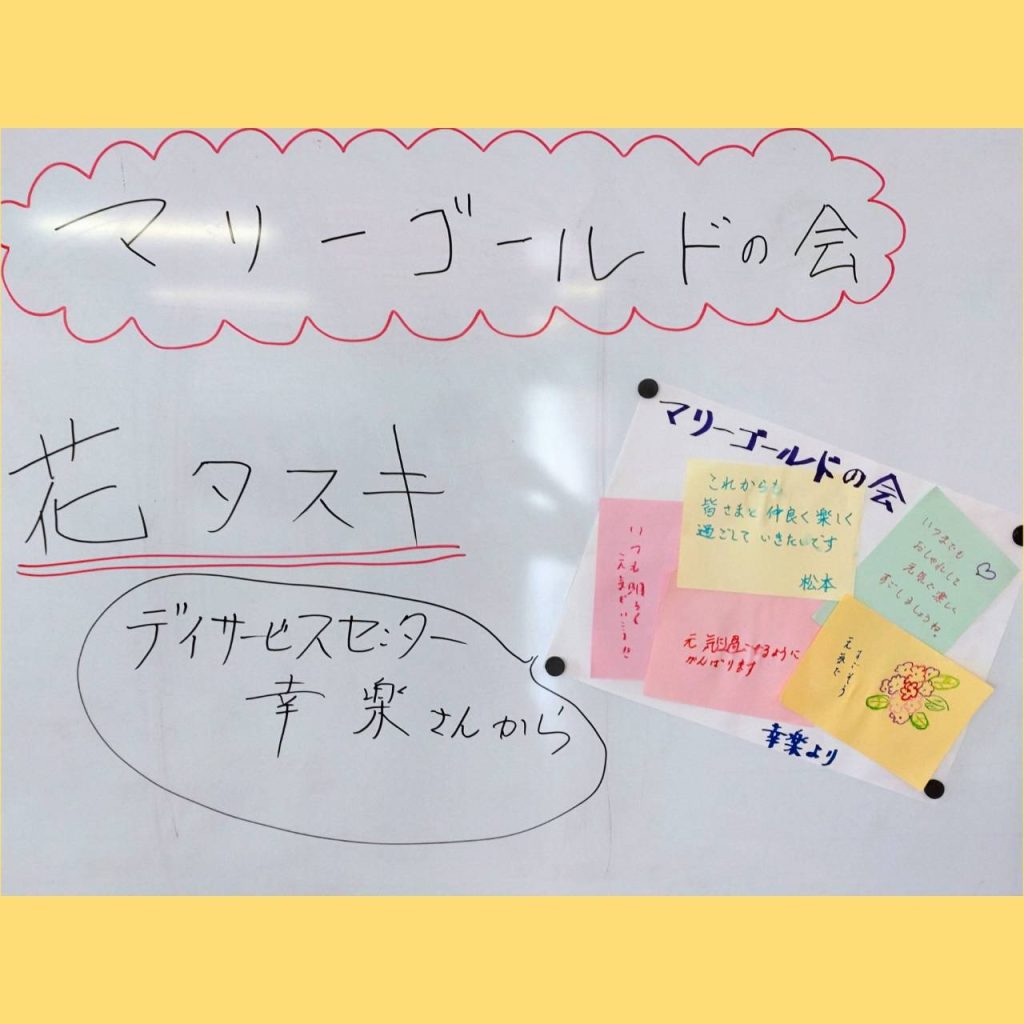 マリーゴールドの会
花タスキ
デイサービスセンター
幸楽さんから
マリーゴールドの会
これからも
皆さまと仲良く楽しく
過ごしていきたいです
松本
いつも明るく
元気でいこうね
いつまでも
おしゃれして
元気で楽しく
すごしましょうね。
元気に
がんばります
すごそう
元気で
幸楽より